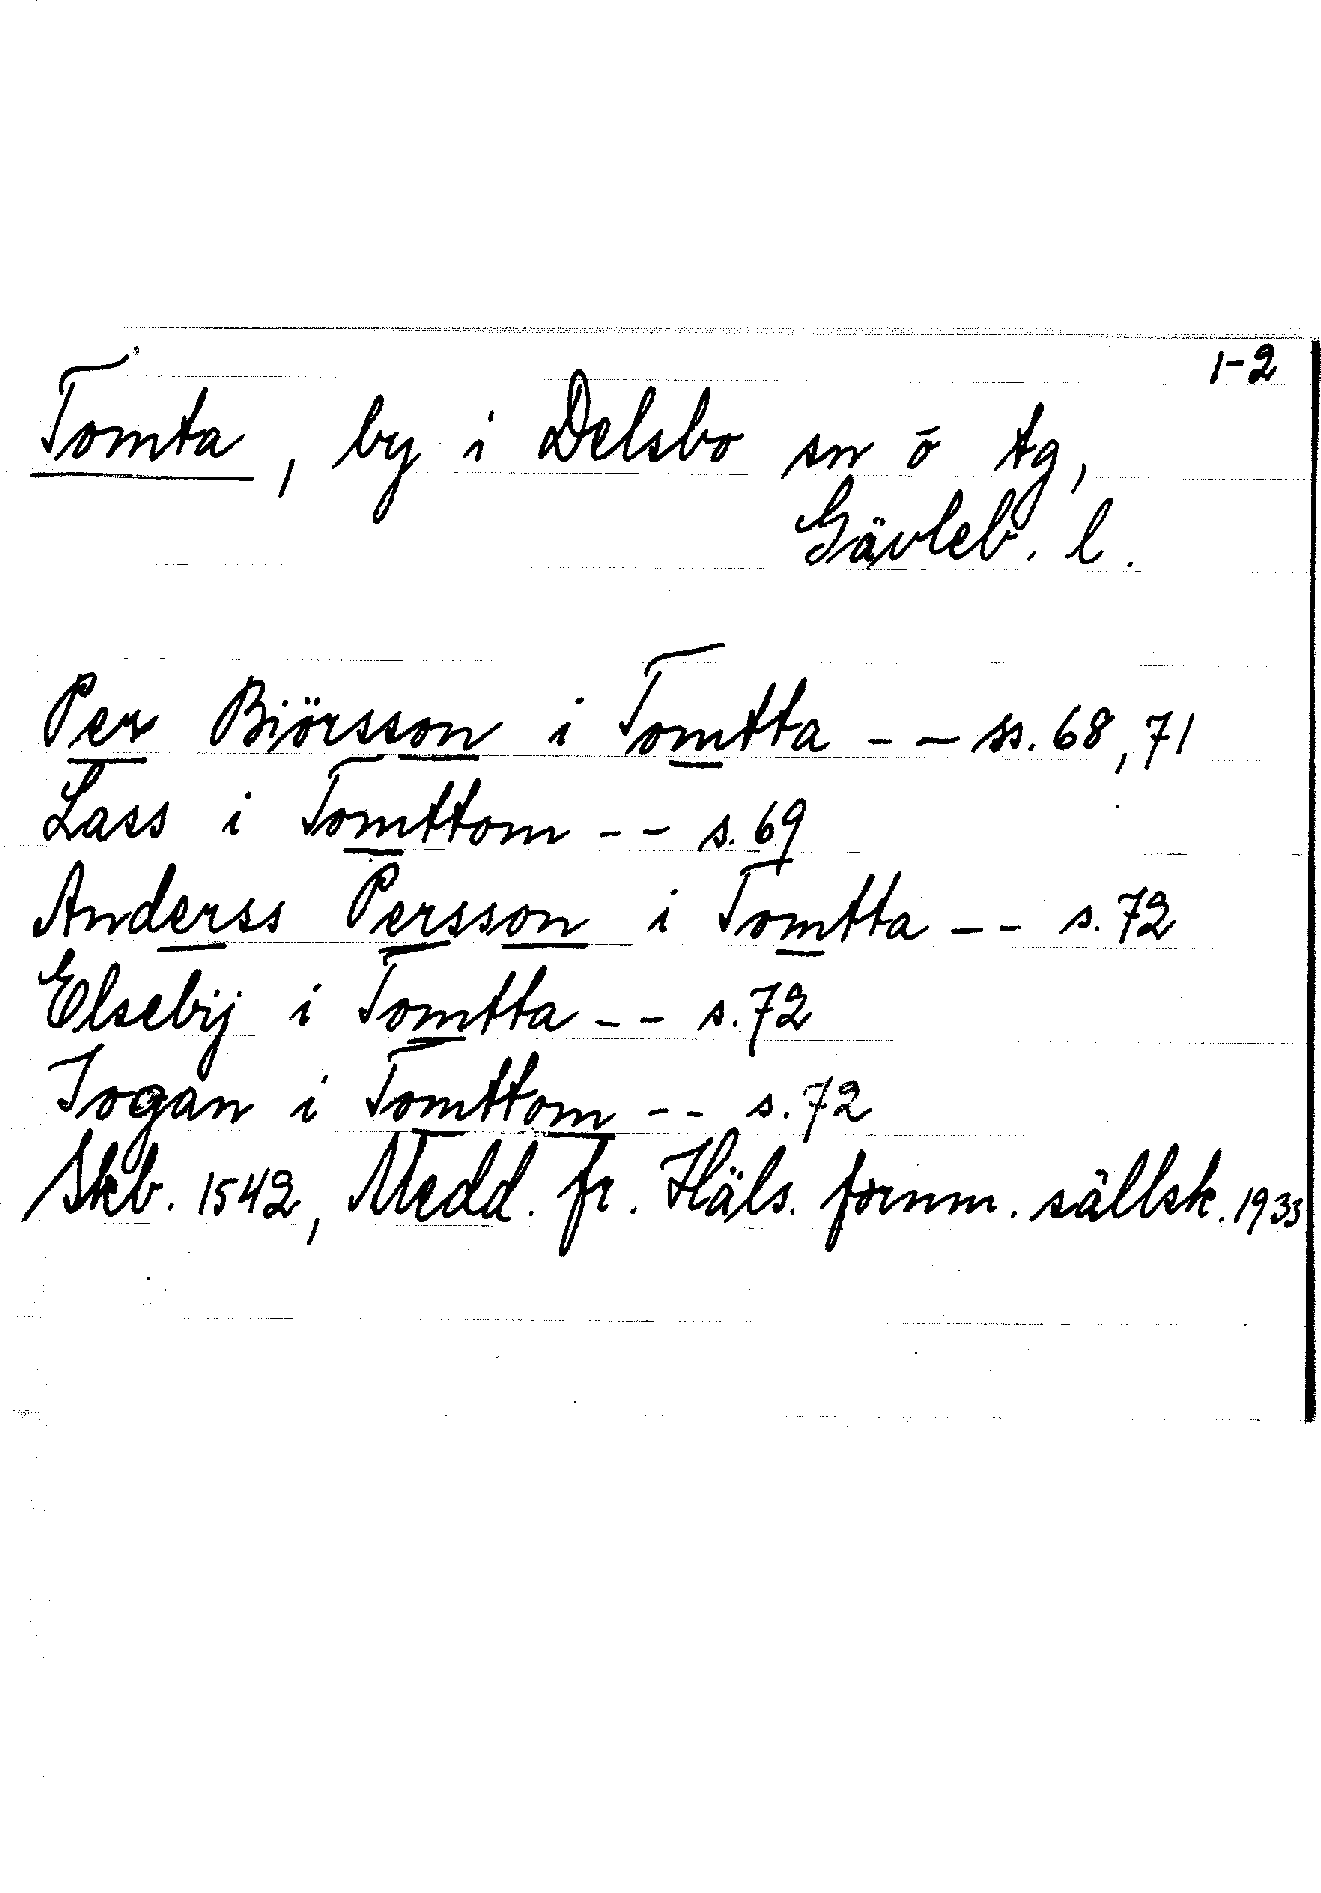 1-2
Tomta, by i Delsbo sn o tg,
Gävleb. l.
Per Biörsson i Tomtta -- ss. 68, 71
Lass i Tomttom -- s. 69
Anderss Persson i Tomtta -- s. 72
Elsebij i Tomtta -- s. 72
Jogan i Tomttom -- s. 72
Skb. 1542, Medd. fr. Häls. fornm. sällsk. 1933